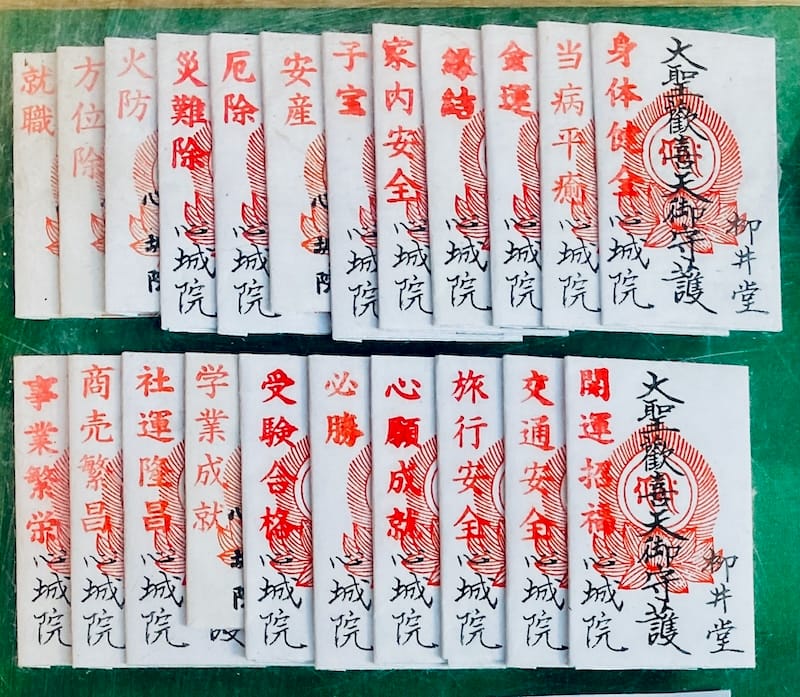 柳井堂
大聖歡喜天御守護
身体健全
心城院
当病平癒
心城院
金運
心城院
縁結
心城院
家内安全
心城院
子宝
心城院
安産
心城院
厄除
心城院
災難除
心城院
火防
心城院
方位除
就職
柳井堂
大聖歡喜天御守護
開運招福
心城院
交通安全
心城院
旅行安全
心城院
心願成就
心城院
必勝
心城院
受験合格
心城院
学業成就
心城院
社運隆昌
心城院
商売繁昌
心城院
事業繁栄
心城院